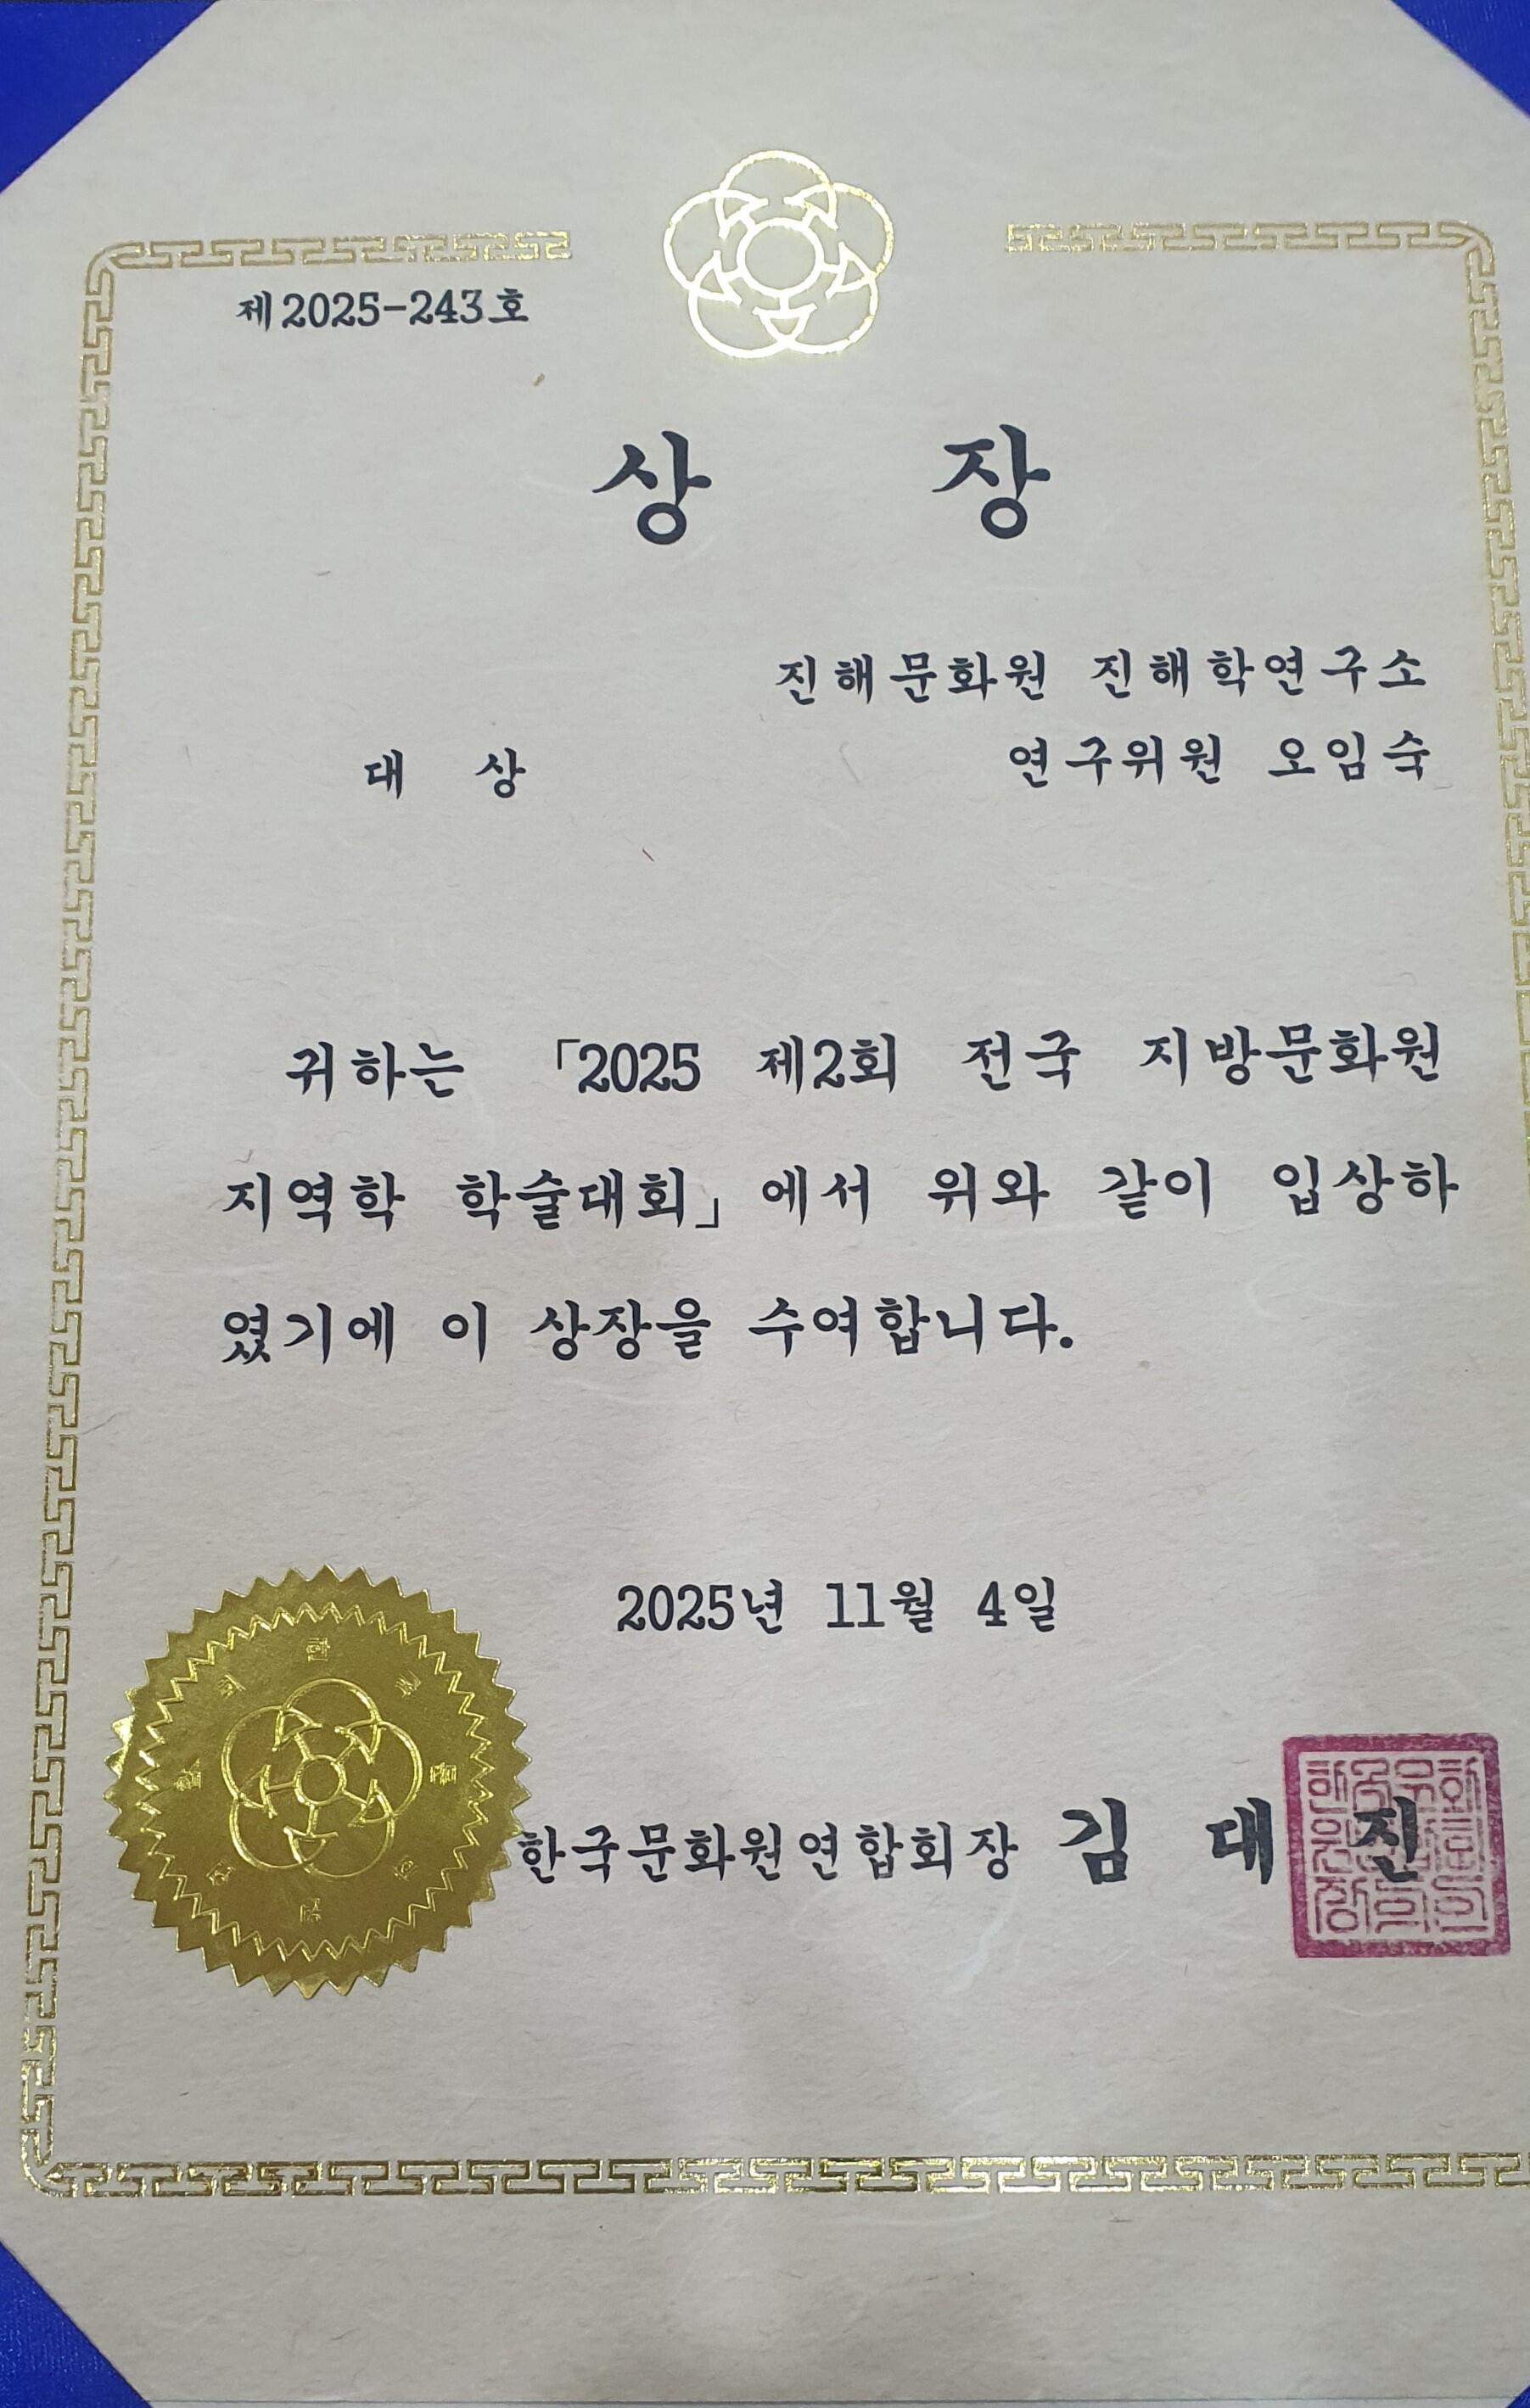 제2025-243호
상 장
진해문화원 진해학연구소
대 상 연구위원 오임숙
귀하는 「2025 제2회 전국 지방문화원
지역학 학술대회」에서 위와 같이 입상하
였기에 이 상장을 수여합니다.
2025년 11월 4일
한국문화원연합회장 김 대 진